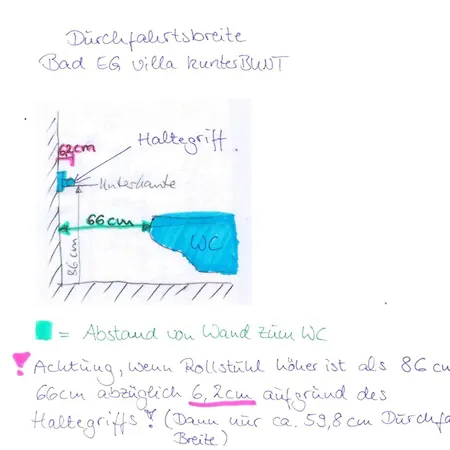 Durchfahrtsbreite
Bad EG villa kunterBUNT
6,2cm
Haltegriff.
Unterkante
66cm
86cm
WC
= Abstand von Wand zum WC
! Achtung, wenn Rollstuhl höher ist als 86 cm
66cm abzüglich 6,2cm aufgrund des
Haltegriffs! (Dann nur ca. 59,8cm Durchfa
Breite)